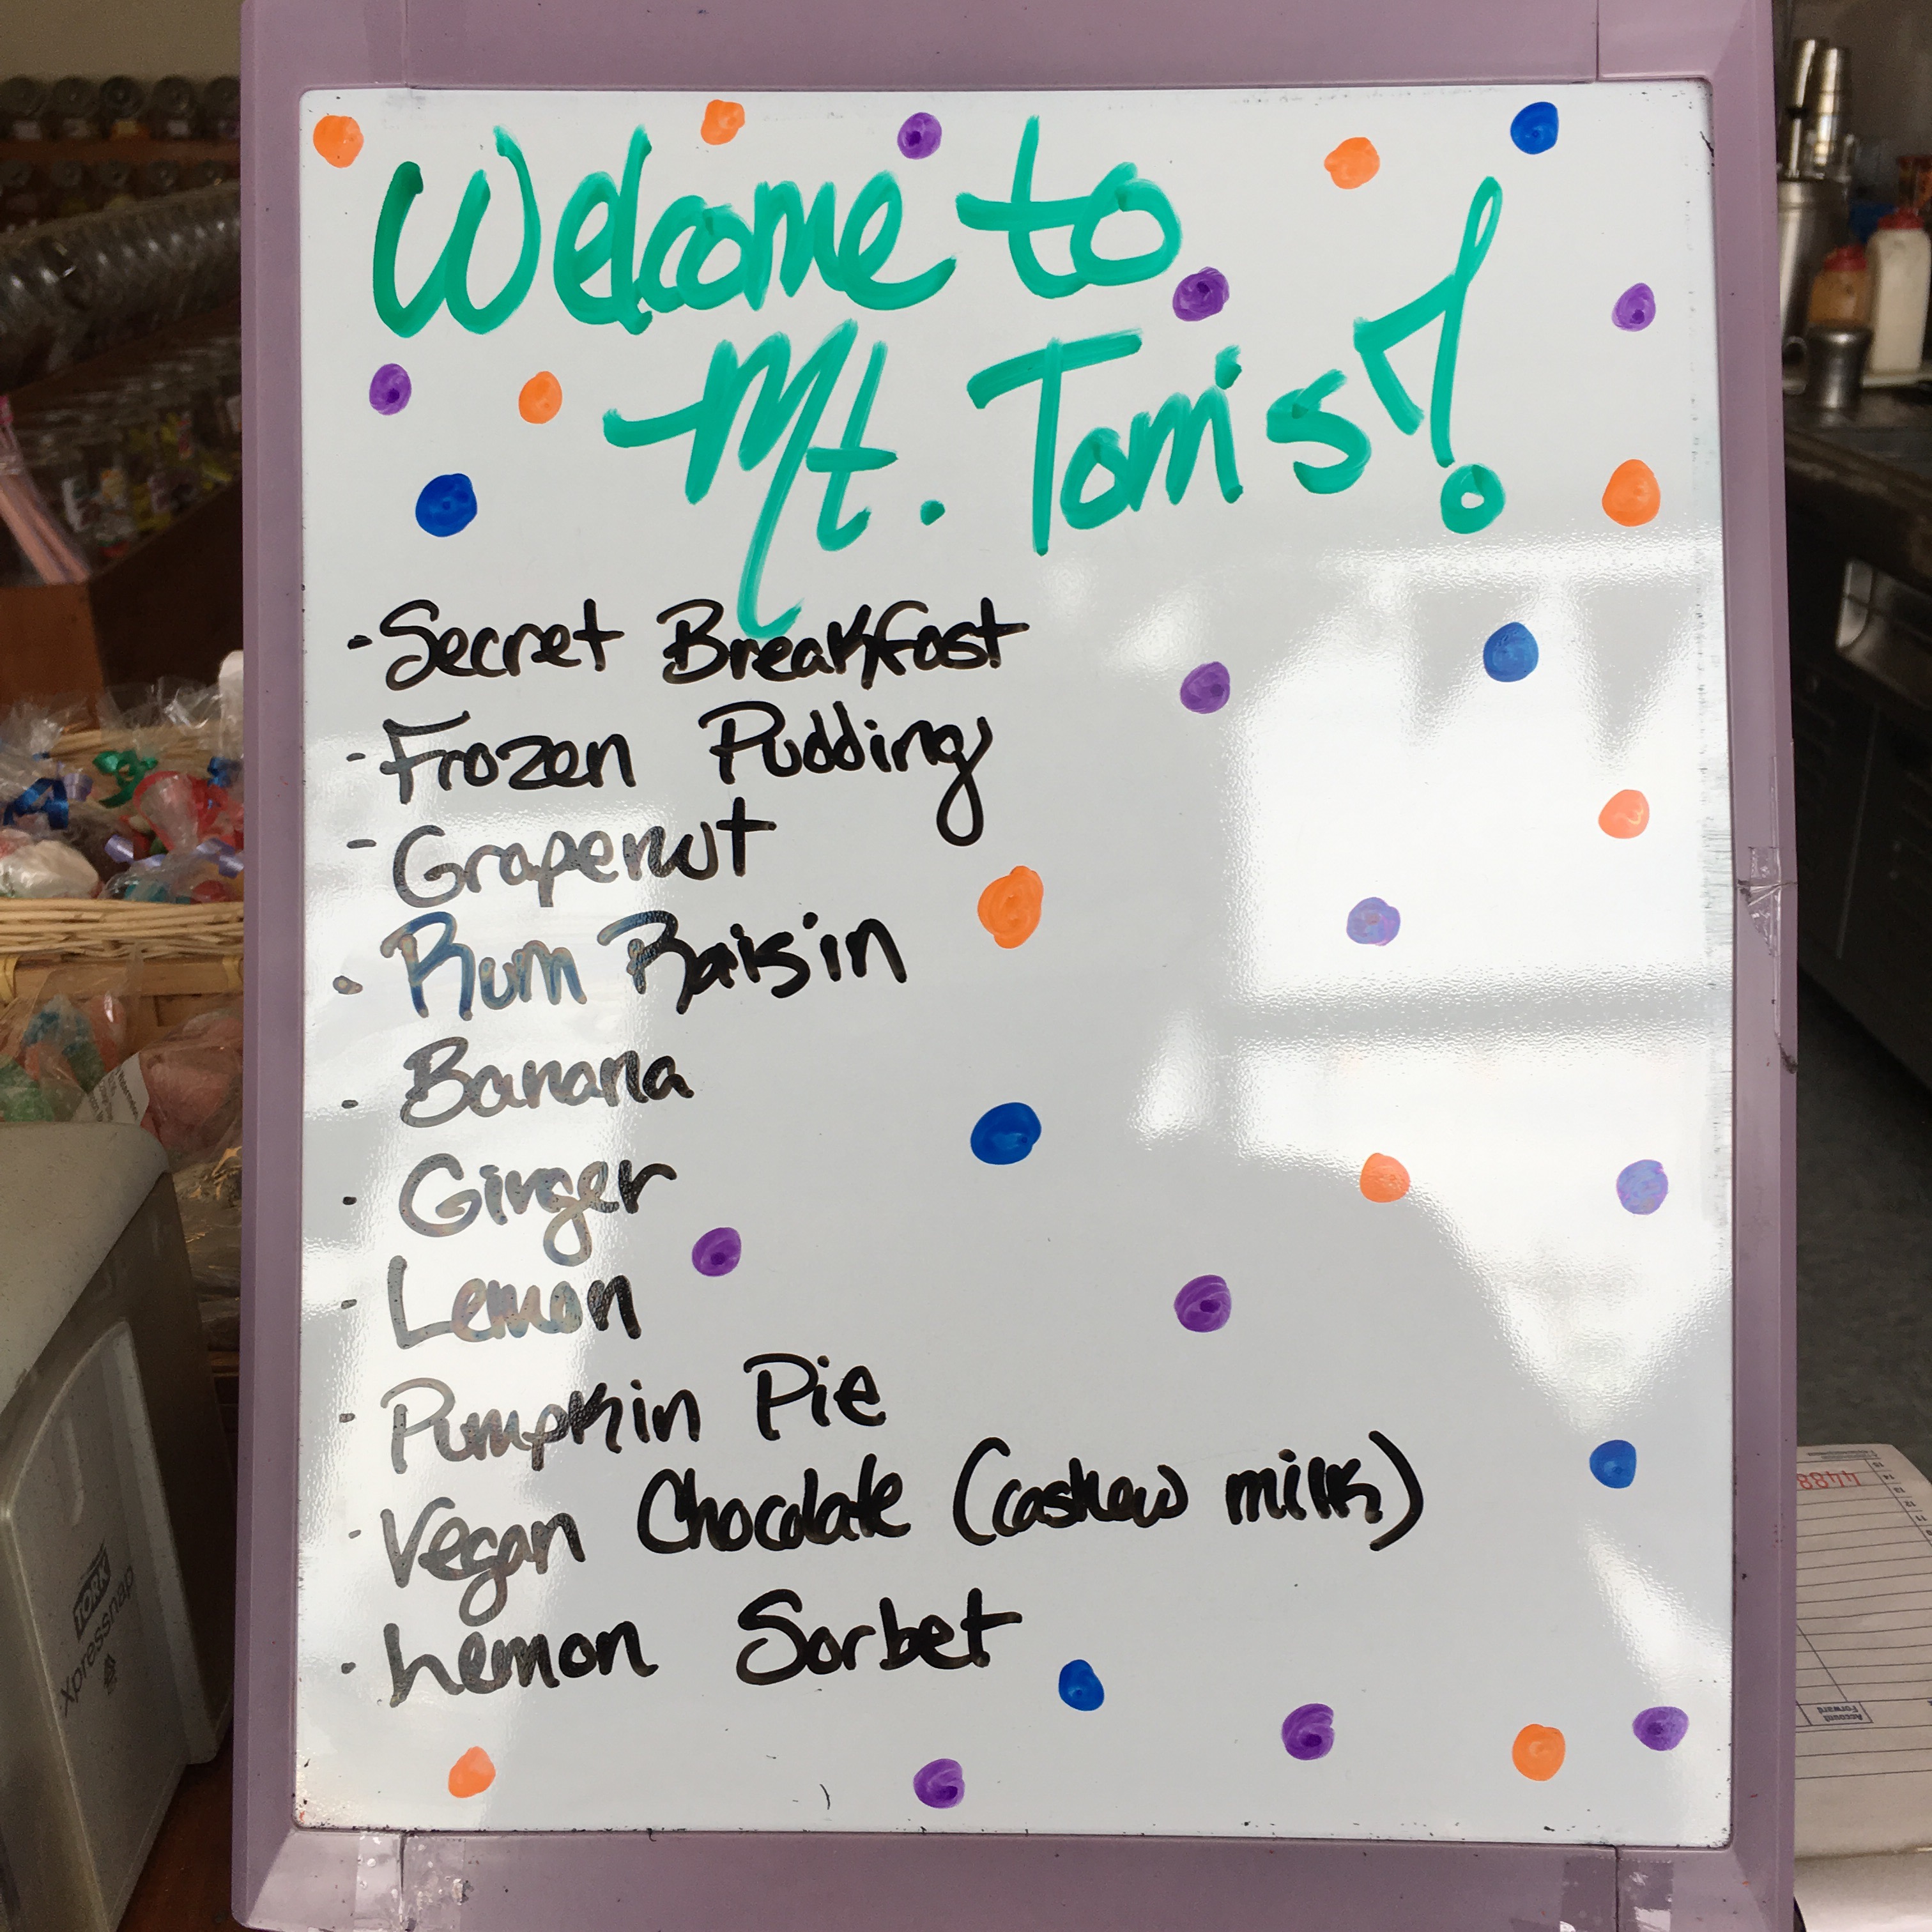 Welcome to
Mt. Tom's!
- Secret Breakfast
- Frozen Pudding
- Grapenut
- Rum Raisin
- Banana
- Ginger
- Lemon
- Pumpkin Pie
- Vegan Chocolate (cashew milk)
- Lemon Sorbet
TORK
xpressnap
Account
Forward